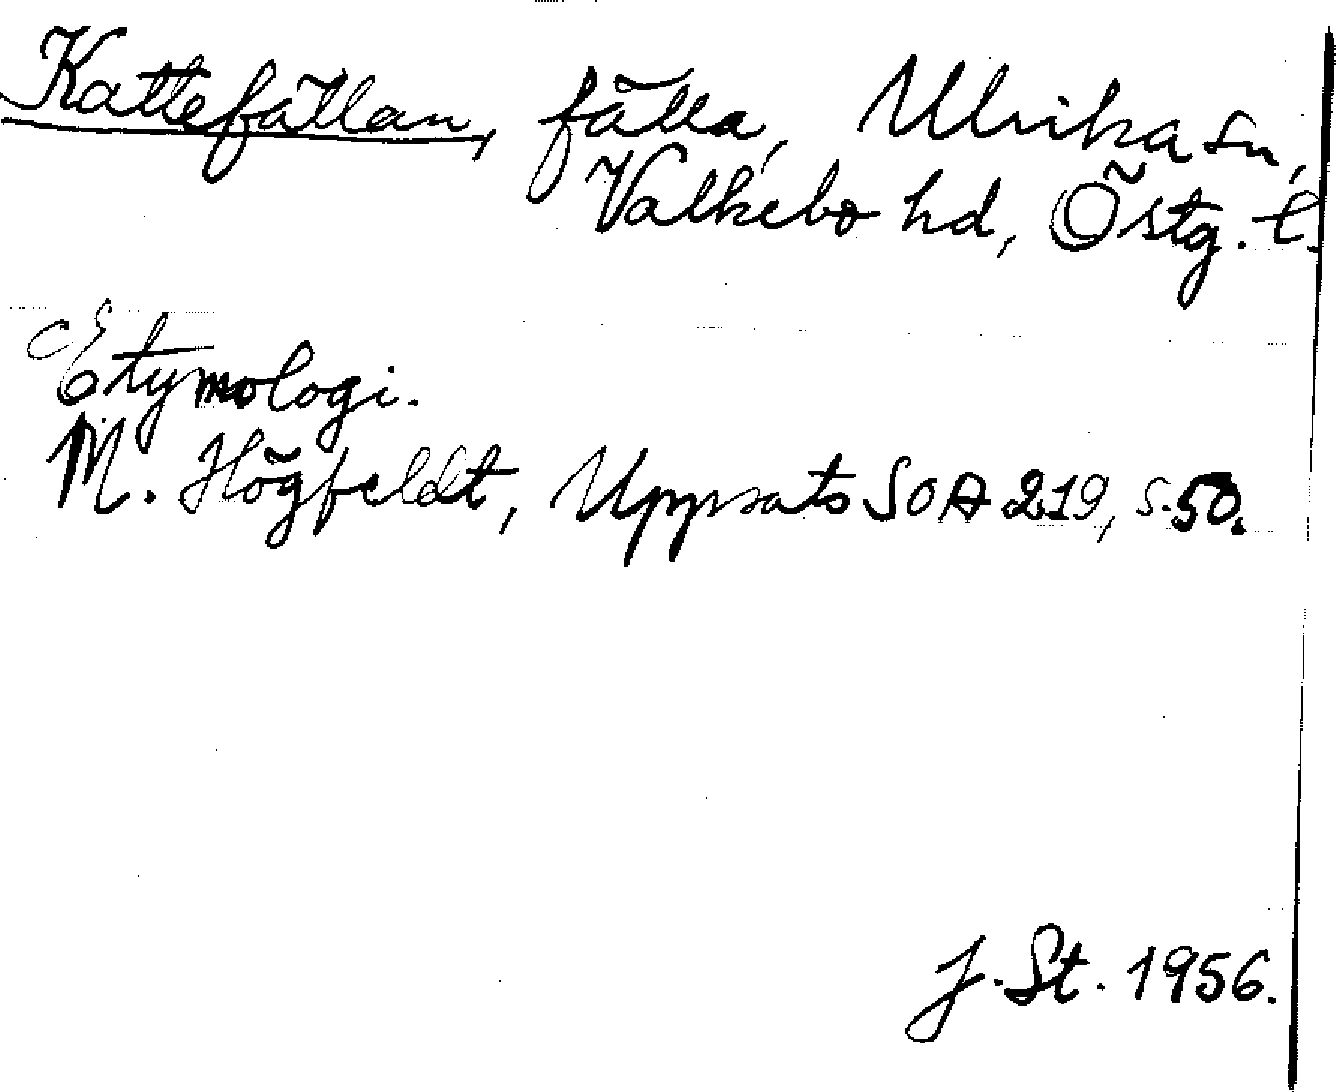 Kattefällan, fälla, Ulrika sn,
Valkebo hd, Östg. l.
Etymologi.
M. Högfeldt, Uppsats SOA 219, s. 50.
J. St. 1956.